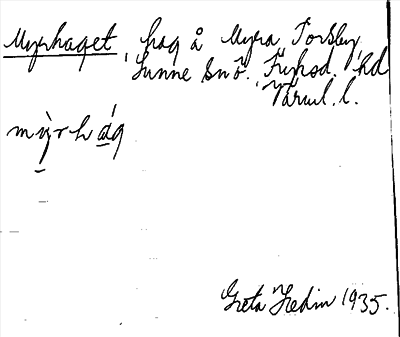 Myrhaget, hag å Myra Torsby,
Sunne snö. Fryksd. hd
Värml. l.
mỳrhág
Greta Hedin 1935.